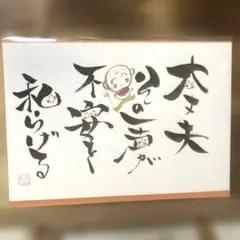 大丈夫
その一声が
不安を
和らげる